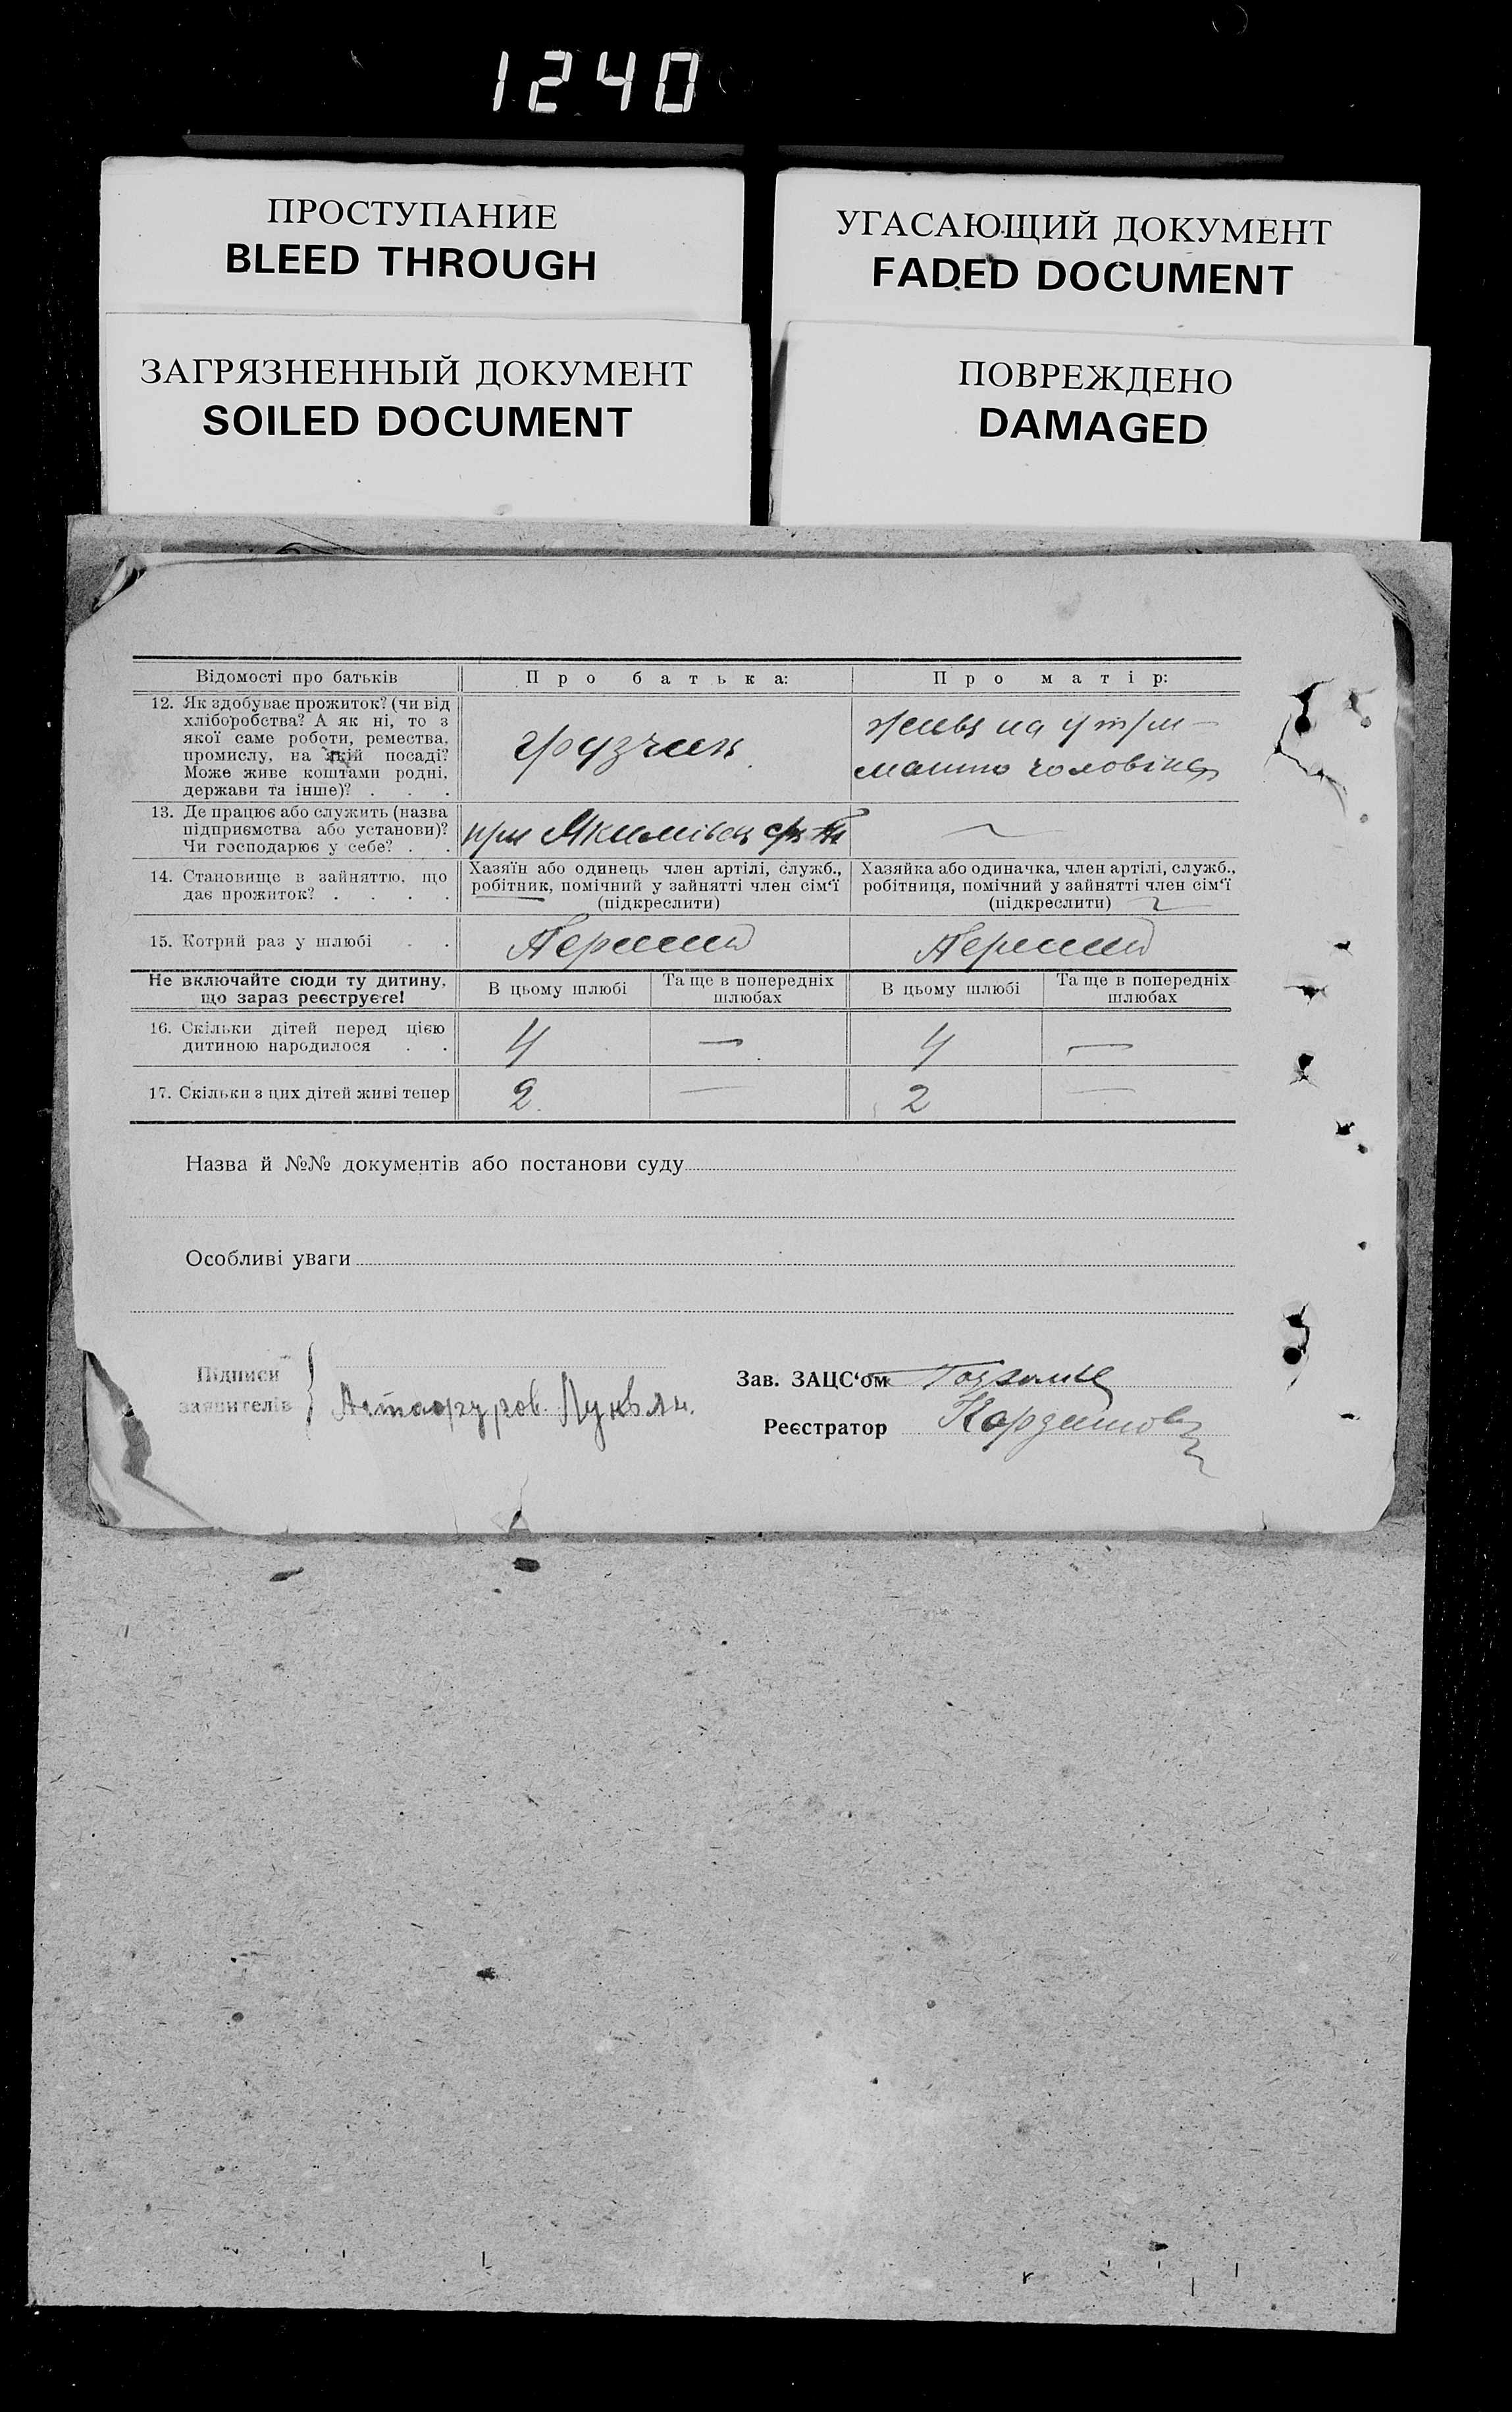 1240
ПРОСТУПАНИЕ
BLEED THROUGH
УГАСАЮЩИЙ ДОКУМЕНТ
FADED DOCUMENT
ЗАГРЯЗНЕННЫЙ ДОКУМЕНТ
SOILED DOCUMENT
ПОВРЕЖДЕНО
DAMAGED
Відомості про батьків
Про батька:
Про матір:
12. Як здобуває прожиток? (чи від
хліборобства? А як ні, то з
якої саме роботи, ремества,
промислу, на якій посаді?
Може живе коштами родні,
держави та інше)? . . .
грузчик
живе на утри-
манню чоловіка
13. Де працює або служить (назва
підприємства або установи)?
Чи господарює у себе? . .
при
14. Становище в зайняттю, що
дає прожиток? . . . .
Хазяїн або одинець член артілі, служб.,
робітник, помічний у зайнятті член сім'ї
(підкреслити)
Хазяйка або одиначка, член артілі, служб.,
робітниця, помічний у зайнятті член сім'ї
(підкреслити)
15. Котрий раз у шлюбі . .
Перший
Перший
Не включайте сюди ту дитину,
що зараз реєструєте!
В цьому шлюбі
Та ще в попередніх
шлюбах
В цьому шлюбі
Та ще в попередніх
шлюбах
16. Скільки дітей перед цією
дитиною народилося . .
4
—
4
—
17. Скільки з цих дітей живі тепер
2
—
2
—
Назва й №№ документів або постанови суду
Особливі уваги
Підписи
заявителів
Зав. ЗАЦС'ом
Реєстратор